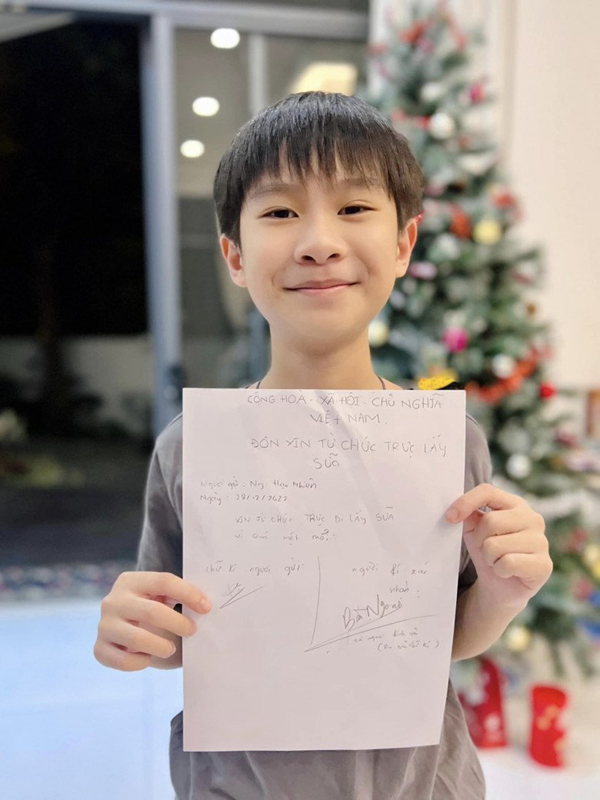 CỘNG HOÀ - XÃ HỘI - CHỦ NGHĨA
VIỆT NAM.
ĐƠN XIN TỪ CHỨC TRỰC LẤY
SỮA
Người gửi: Ng Hạo Nhiên
Ngày: /12/2023
XIN TỪ CHỨC TRỰC ĐI LẤY SỮA
vì quá mệt mỏi.
chữ kí người gửi
người kí xác
nhận:
Bà Ngoại